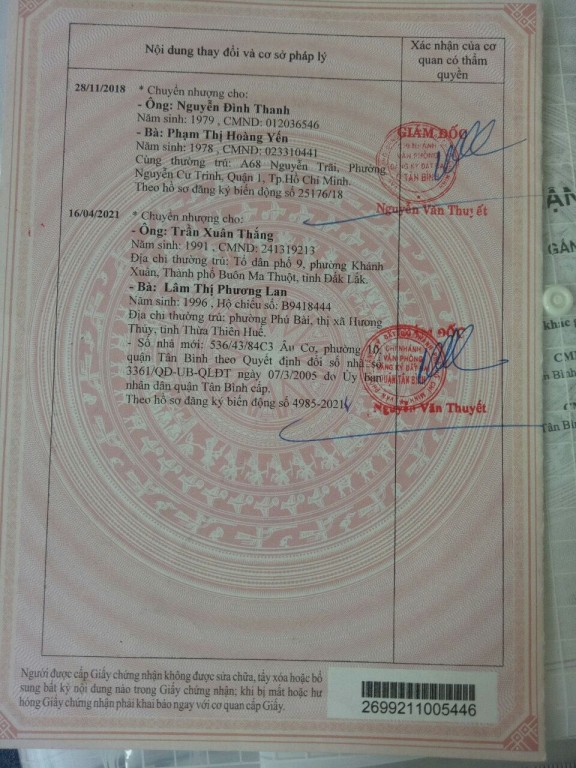 Nội dung thay đổi và cơ sở pháp lý
Xác nhận của cơ
quan có thẩm
quyền
28/11/2018 * Chuyển nhượng cho:
- Ông: Nguyễn Đình Thanh
Năm sinh: 1979 , CMND: 012036546
- Bà: Phạm Thị Hoàng Yến
Năm sinh: 1978 , CMND: 023310441
Cùng thường trú: A68 Nguyễn Trãi, Phường
Nguyễn Cư Trinh, Quận 1, Tp.Hồ Chí Minh.
Theo hồ sơ đăng ký biến động số 25176/18
GIÁM ĐỐC
CHI NHÁNH
VĂN PHÒNG
ĐĂNG KÝ ĐẤT ĐAI
TÂN BÌNH
Nguyễn Văn Thuyết
16/04/2021 * Chuyển nhượng cho:
- Ông: Trần Xuân Thắng
Năm sinh: 1991 , CMND: 241319213
Địa chỉ thường trú: Tổ dân phố 9, phường Khánh
Xuân, Thành phố Buôn Ma Thuột, tỉnh Đắk Lắk.
- Bà: Lâm Thị Phương Lan
Năm sinh: 1996 , Hộ chiếu số: B9418444
Địa chỉ thường trú: phường Phú Bài, thị xã Hương
Thủy, tỉnh Thừa Thiên Huế.
- Số nhà mới: 536/43/84C3 Âu Cơ, phường 10,
quận Tân Bình theo Quyết định đổi số nhà số
3361/QĐ-UB-QLĐT ngày 07/3/2005 do Ủy ban
nhân dân quận Tân Bình cấp.
Theo hồ sơ đăng ký biến động số 4985-2021
GIÁM ĐỐC
CHI NHÁNH
VĂN PHÒNG
ĐĂNG KÝ ĐẤT ĐAI
QUẬN TÂN BÌNH
Nguyễn Văn Thuyết
Người được cấp Giấy chứng nhận không được sửa chữa, tẩy xóa hoặc bổ
sung bất kỳ nội dung nào trong Giấy chứng nhận; khi bị mất hoặc hư
hỏng Giấy chứng nhận phải khai báo ngay với cơ quan cấp Giấy.
2699211005446